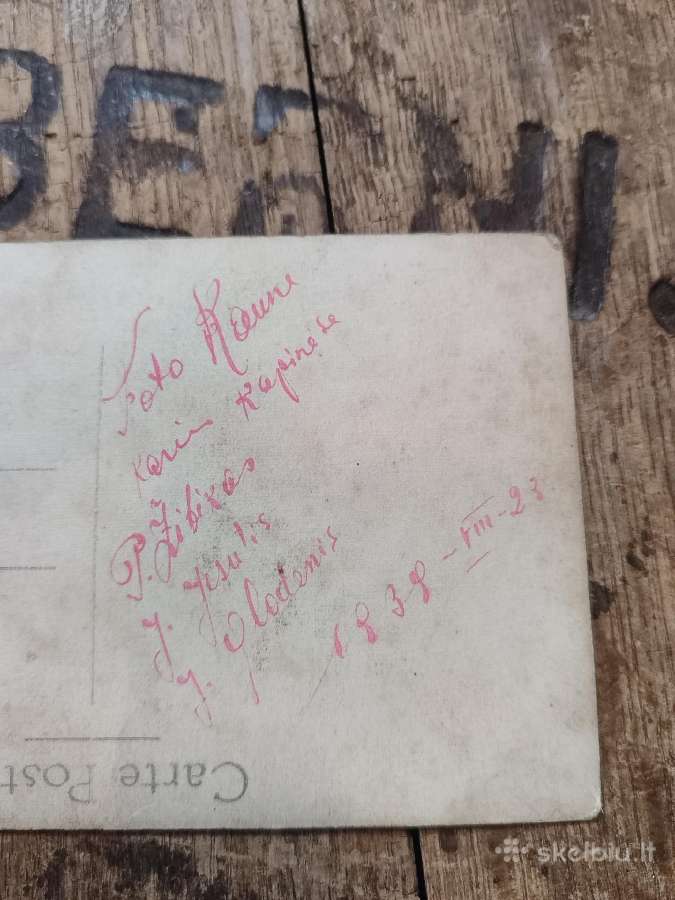 Foto Kaune
Karių Kapinėse
P. Žibikas
J. Jesulis
J. Glodenis
1938-VIII-23
Carte Post
skelbiu.lt